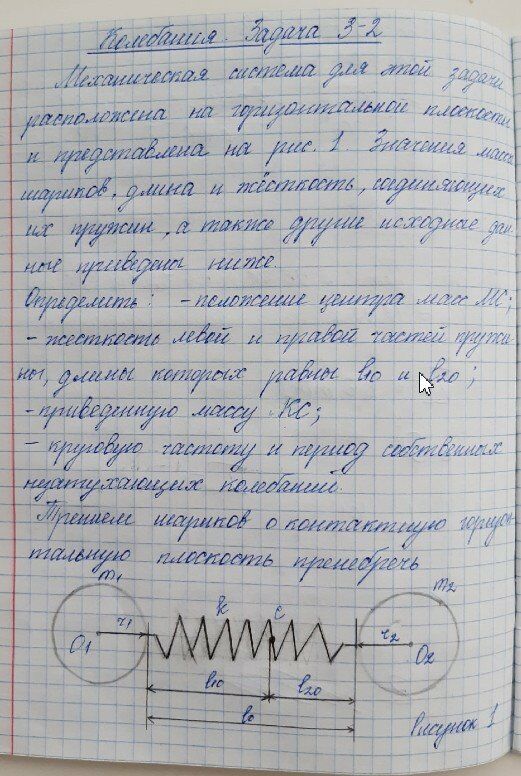 Колебания. Задача 3-2
Механическая система для этой задачи
расположена на горизонтальной плоскости
и представлена на рис. 1. Значения масс
шариков, длина и жёсткость, соединяющих
их пружин, а также другие исходные дан-
ные приведены ниже.
Определить: - положение центра масс МС;
- жесткость левой и правой частей пружи-
ны, длины которых равны l10 и l20;
- приведенную массу КС;
- круговую частоту и период собственных
незатухающих колебаний.
Трением шариков о контактную горизон-
тальную плоскость пренебречь
m1 m2
k c
O1 r1 r2 O2
l10 l20
l0
Рисунок 1